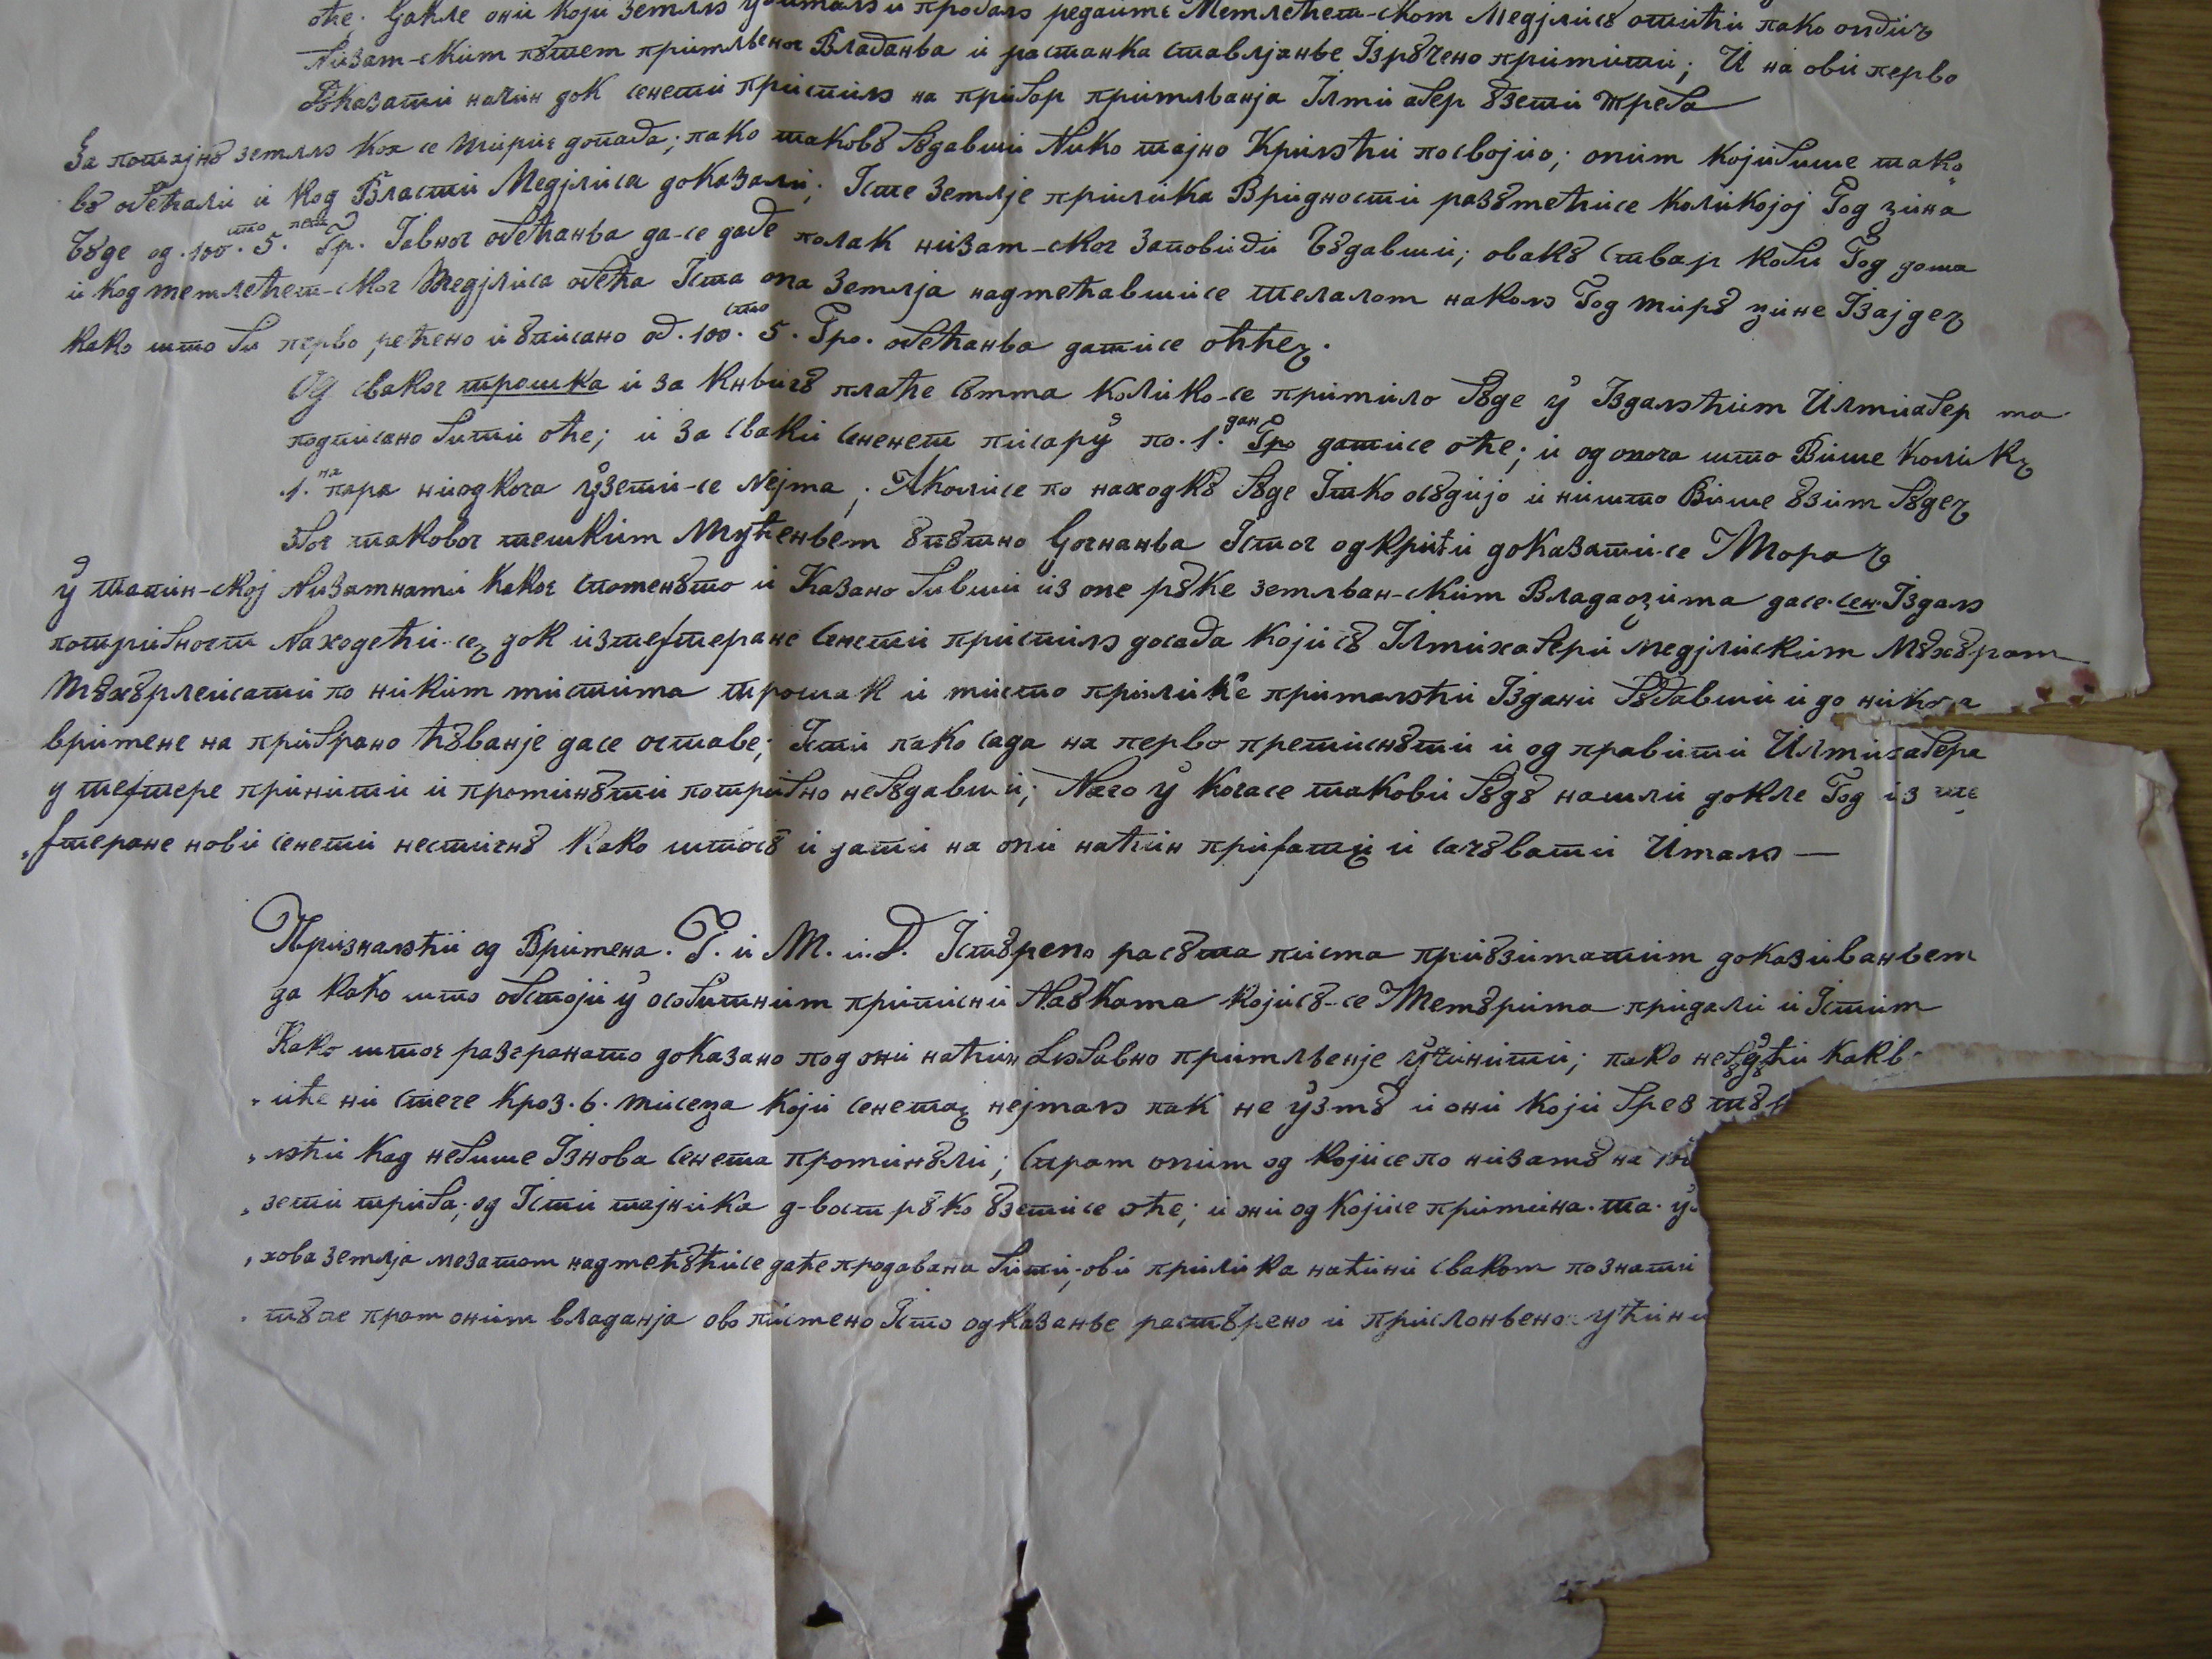 оће; Gакле они који землю продаю редаите Метлећет-ском Медјлисȣ отићи пако ондиъ
Низам-ским пȣтем примлѣног Владанѣа и растанка ставлјанѣе Јзрȣчено примити; И на ови перво
Показати начин док сенети приспию на прибор примлванја Јлмиабер ȣзети треба
За потајнȣ землю коя се мирие допада; пако таковȣ бȣдавши Нико тајно Криюћи посвојио; оним којибише тако„
вȣ обећали и код Власти Медјлиса доказали; Јсте землје прилика Вридности разȣмећисе коликојој Год цина
бȣде од .100. сто 5. пет Гр. Јавног обећанѣа да-се даде полак низам-ског заповиди бȣдавши; овакȣ ствар коби Год доша
и код темлећет-ског Медјлиса обећа Јста она землја надмећавшисе телалом наколю Год мирȣ цине Јзајдеъ
како што би перво речено и ȣписано од .100. сто 5. Гро. обећанѣа датисе оћћеъ.
Од сваког трошка и за Кнѣигȣ плаће сȣмма колико-се примило бȣде ӱ Јздаюћим Илмиабер ма
подписано бити оће; и за сваки сененет писарӱ по .1. дан Гро датисе оће; и од онога што Више колик
.1. на пара ниодкога ӱзети-се Nејма; Аколисе по находкȣ бȣде Јтко осȣдијо и ништо Више ȣзим бȣдеъ
због таковог тешким Мӱћенѣем ȣпȣтно Gогнанѣа Јстог одкрити доказати-се Мораъ
ӱ тапин-ској Низамнами каког споменȣто и Казано бивши из оне рȣке земљан-ским Владаоцима дасе-сен-Јздаю
потрибност Находећи-се, док измефтеране Сенети приспию досада којисȣ Јлмихабери медјлиским Мȣхȣром
Мȣхȣрлеисати по никим мистима трошак и мисто прилике примаюћи Јздани бȣдавши и до никога
времене на прибрано ћȣванје дасе оставе; Јсти пако сада на перво премиснȣти и од правити Илмихабера
у тефтере принити и проминȣти потрибно небȣдавши; Nего ӱ Когасе такови бȣдȣ нашли докле Год из те
„фтеране нови сенети нестигнȣ како штосȣ и дати на они наћин прифатити и сачȣвати Имаю —
Признаюћи од Времена. Г. и М. и. D. Јстȣрено расȣта писма приȣзиматим доказиванѣем
да како што обстоји ӱ особитним приписни Наȣкама којисȣ-се Memȣрима придали и Јстим
Како штог разгранато доказано под они наћин Lюбавно примлѣенје ӱчинити; пако небȣдӱћи какв-
„ иће ни стеге кроз .6. мисеца који сенета нејмаю пак не ӱзмȣ и они који брез тȣ
„ юћи кад небише Јзнова сенета проминȣли; Спрам оним од којисе по низамȣ на
„ зети триба; од Јсти тајника д-вострȣко ȣзетисе оће; и они од којисе примина. та. ӱ
„ хова землја мезатом надмећȣћисе даће продавана бити; ови прилика наћини сваком познати
„ тȣпе прам оним владанја ово писмено Јсто одказанѣе растȣрено и прислонѣено ӱћини